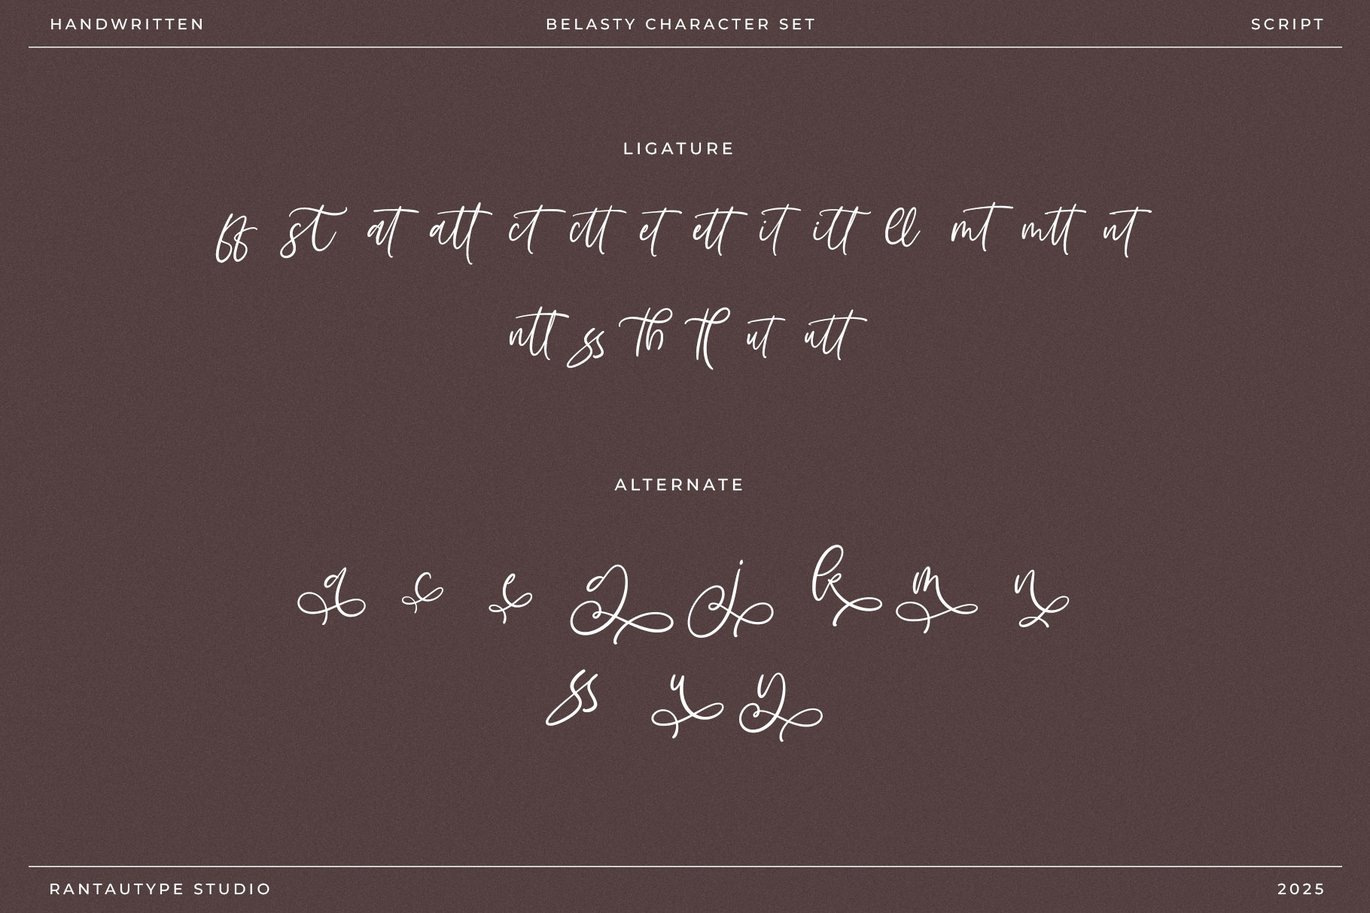 HANDWRITTEN
BELASTY CHARACTER SET
SCRIPT
LIGATURE
ff st at att ct ctt et ett it itt ll mt mtt nt
ntt ss th tt ut utt
ALTERNATE
a c e g j k m n
ss u y
RANTAUTYPE STUDIO
2025